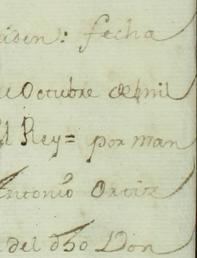 iden: fecha
de Octubre de mil
el Rey = por man
Antonio Ortiz
del dho Don